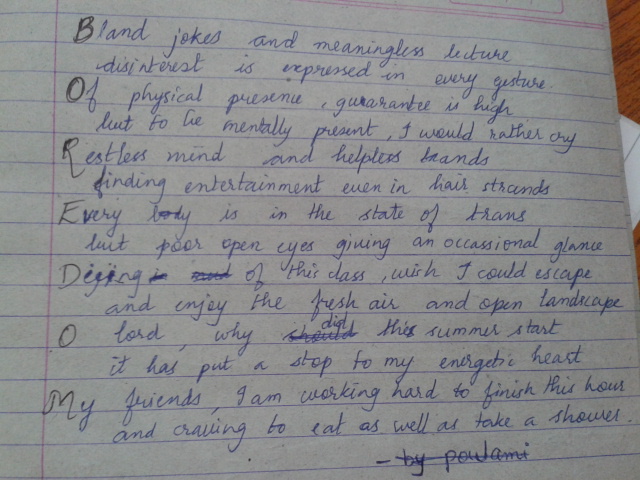 Bland jokes and meaningless lecture
disinterest is expressed in every gesture
Of physical presence, guarantee is high
but to be mentally present, I would rather cry
Restless mind and helpless hands
finding entertainment even in hair strands
Every body is in the state of trans
but poor open eyes giving an occasional glance
of this class, wish I could escape
and enjoy the fresh air and open landscape
O lord, why did this summer start
it has put a stop to my energetic heart
My friends, I am working hard to finish this hour
and craving to eat as well as take a shower.
- by poulami